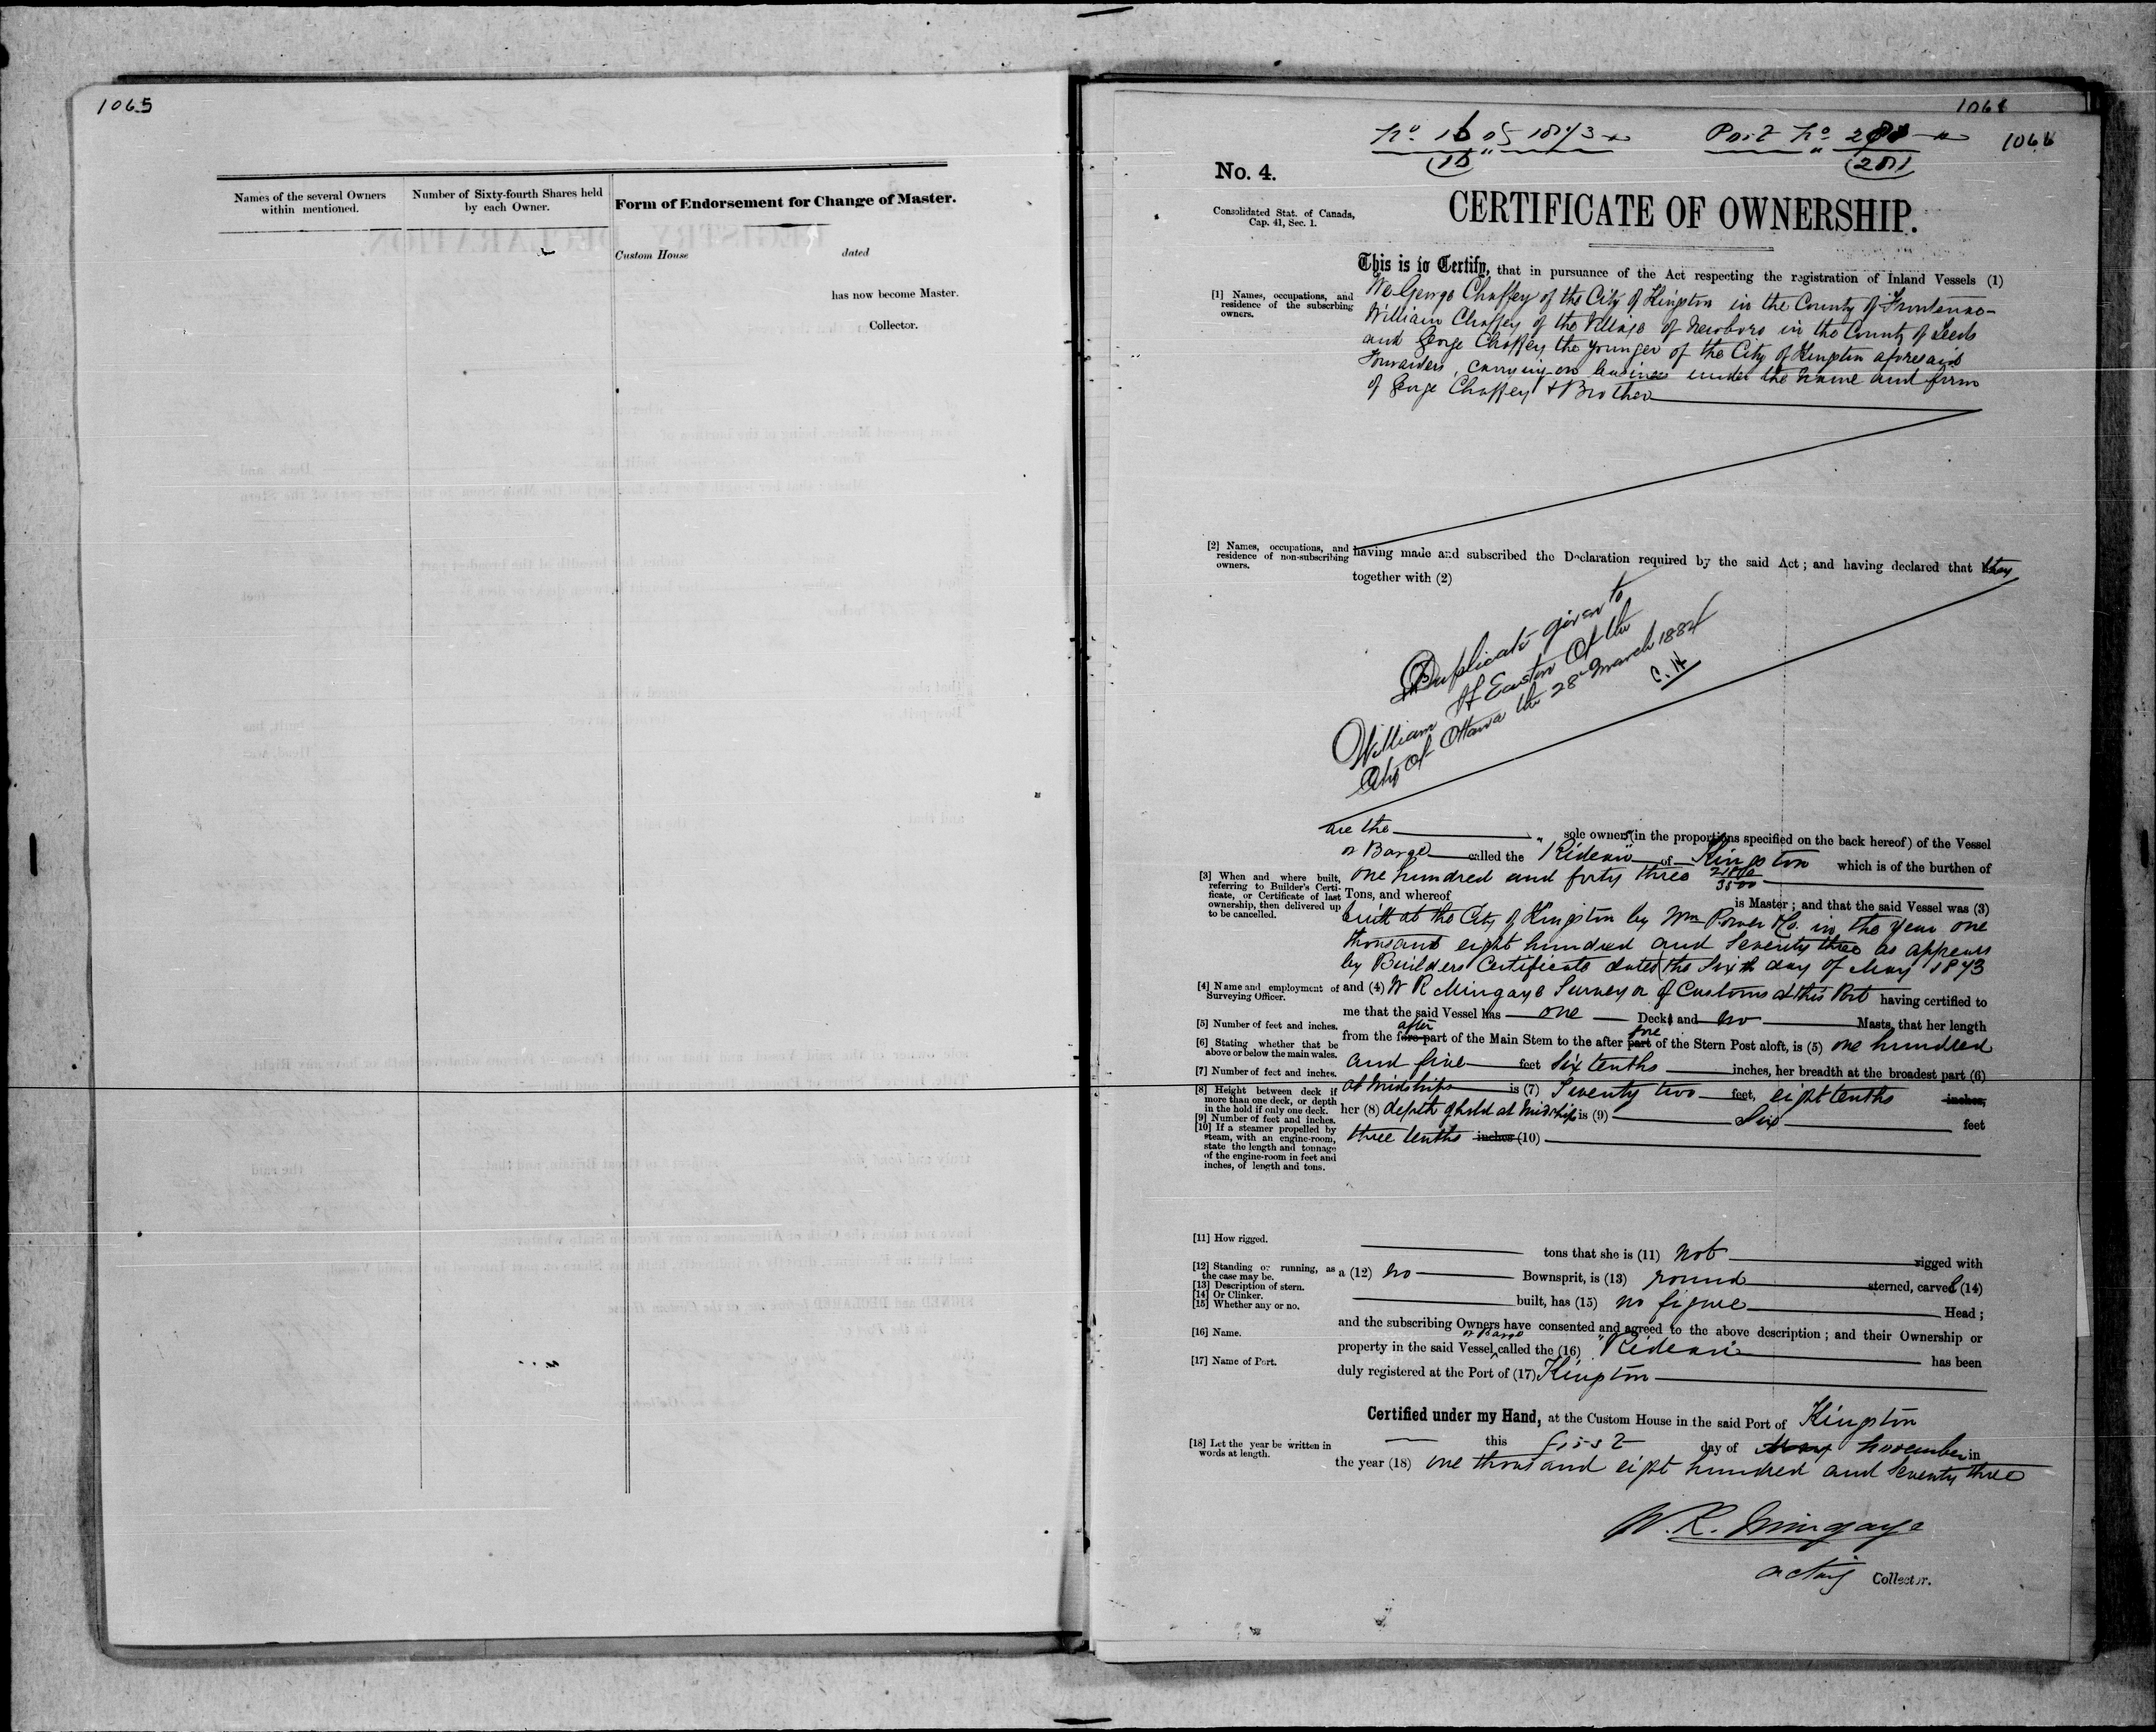 1065
Names of the several Owners
within mentioned.
Number of Sixty-fourth Shares held
by each Owner.
Form of Endorsement for Change of Master.
Custom House dated
has now become Master.
Collector.
1066
No. 4.
Consolidated Stat. of Canada,
Cap. 41, Sec. 1.
CERTIFICATE OF OWNERSHIP.
This is to Certify, that in pursuance of the Act respecting the registration of Inland Vessels (1)
[1] Names, occupations, and
residence of the subscrbing
owners.
We George Chaffey of the City of Kingston in the County of Frontenac
William Chaffey of the Village of Newboro in the County of Leeds
and George Chaffey the younger of the City of Kingston aforesaid
Forwarders, carrying on business under the name and firm
of George Chaffey & Brother
[2] Names, occupations, and
residence of non-subscribing
owners.
having made and subscribed the Declaration required by the said Act ; and having declared that they
together with (2)
Duplicate given to
William H Easton of the
City of Ottawa the 28th March 1884
C. H
are the sole owners (in the proportions specified on the back hereof) of the Vessel
or Barge called the "Rideau" of Kingston which is of the burthen of
one hundred and forty three
Tons, and whereof is Master ; and that the said Vessel was (3)
[3] When and where built,
referring to Builder's Certi-
ficate, or Certificate of last
ownership, then delivered up
to be cancelled.
built at the City of Kingston by Wm Power & Co. in the year one
thousand eight hundred and seventy three as appears
by Builders Certificate dated the Sixth day of May 1873
[4] Name and employment of
Surveying Officer.
and (4) W R Mingaye Surveyor of Customs at this Port having certified to
me that the said Vessel has one Deck and no Masts, that her length
[5] Number of feet and inches.
after fore
from the fore part of the Main Stem to the after part of the Stern Post aloft, is (5) one hundred
[6] Stating whether that be
above or below the main wales.
and five feet six tenths inches, her breadth at the broadest part (6)
[7] Number of feet and inches.
at Midships is (7) Twenty two feet, eight tenths inches,
[8] Height between deck if
more than one deck, or depth
in the hold if only one deck.
her (8) depth of hold at Midship is (9) Six feet
[9] Number of feet and inches.
[10] If a steamer propelled by
steam, with an engine-room,
state the length and tonnage
of the engine-room in feet and
inches, of length and tons.
three tenths inches (10)
[11] How rigged.
tons that she is (11) not rigged with
[12] Standing or running, as
the case may be.
a (12) no Bownsprit, is (13) round sterned, carvel (14)
[13] Description of stern.
[14] Or Clinker.
[15] Whether any or no.
built, has (15) no figure Head ;
and the subscribing Owners have consented and agreed to the above description ; and their Ownership or
[16] Name.
or Barge
property in the said Vessel called the (16) "Rideau" has been
[17] Name of Port.
duly registered at the Port of (17) Kingston
Certified under my Hand, at the Custom House in the said Port of Kingston
this first day of May November in
[18] Let the year be written in
words at length.
the year (18) one thousand eight hundred and seventy three
W. R. Mingaye
acting Collector.